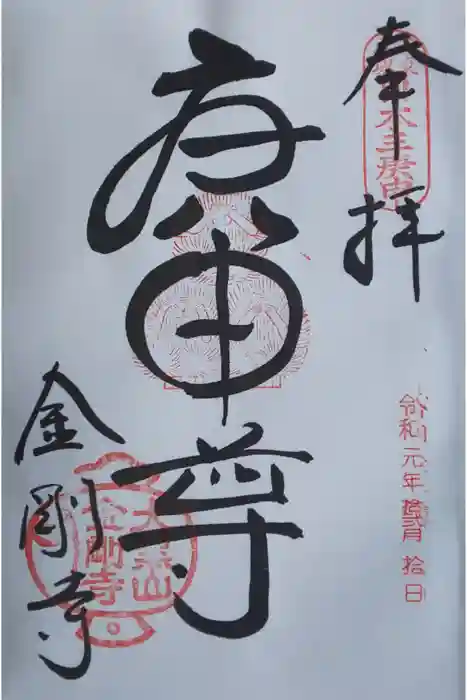 奉拝
本三庚申
庚申尊
令和元年
月拾日
金剛寺
大黒山
金剛寺